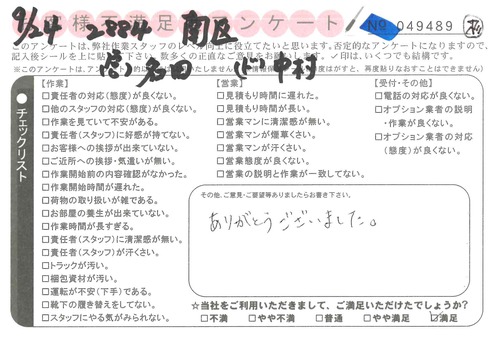 9/24 2884 南区
お客様不満足度アンケート
No 049489
このアンケートは、弊社作業スタッフのレベル向上に役立てたいと思います。否定的なアンケートになりますので、
記入後シールを上に貼って下さい。数多くの正直なご意見をお願いします。✓印は、いくつでも結構です。
中村
チェックリスト
【作業】
□責任者の対応(態度)が良くない。
□他のスタッフの対応(態度)が良くない。
□作業を見ていて不安がある。
□責任者(スタッフ)に好感が持てない。
□お客様への挨拶が出来ていない。
□ご近所への挨拶・気遣いが無い。
□作業開始前の内容確認がなかった。
□作業開始時間が遅れた。
□荷物の取り扱いが雑である。
□お部屋の養生が出来ていない。
□作業時間が長すぎる。
□責任者(スタッフ)に清潔感が無い。
□責任者(スタッフ)が汗くさい。
□トラックが汚い。
□梱包資材が汚い。
□運転が不安(下手)である。
□靴下の履き替えをしてない。
□スタッフにやる気がみられない。
【営業】
□見積もり時間に遅れた。
□見積もり時間が長い。
□営業マンに清潔感が無い。
□営業マンが煙草くさい。
□営業マンが汗くさい。
□営業態度が良くない。
□営業の説明と作業が一致してない。
【受付・その他】
□電話の対応が良くない。
□オプション業者の説明
・作業が良くない。
□オプション業者の対応
(態度)が良くない。
その他、ご意見・ご要望等ありましたらお書き下さい。
ありがとうございました。
☆当社をご利用いただきまして、ご満足いただけたでしょうか?
□不満 □やや不満 □普通 □やや満足 ☑満足